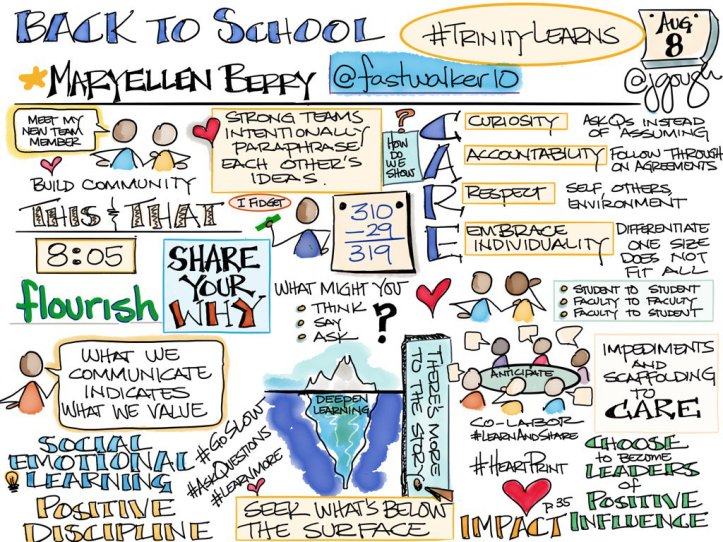 BACK TO SCHOOL
#TRINITYLEARNS
AUG
8
MARYELLEN BERRY
@fastwalker10
@jgough
MEET MY
NEW TEAM
MEMBER
BUILD COMMUNITY
STRONG TEAMS
INTENTIONALLY
PARAPHRASE
EACH OTHER'S
IDEAS.
?
HOW
DO
WE
SHOW
CARE
CURIOSITY
ASK QS INSTEAD
OF ASSUMING
ACCOUNTABILITY
FOLLOW THROUGH
ON AGREEMENTS
RESPECT
SELF, OTHERS,
ENVIRONMENT
EMBRACE
INDIVIDUALITY
DIFFERENTIATE
ONE SIZE
DOES NOT
FIT ALL
THIS & THAT
I FIDGET
310
-29
319
8:05
flourish
SHARE
YOUR
WHY
WHAT MIGHT YOU
THINK
SAY
ASK
?
STUDENT TO STUDENT
FACULTY TO FACULTY
FACULTY TO STUDENT
WHAT WE
COMMUNICATE
INDICATES
WHAT WE VALUE
DEEPEN
LEARNING
THERE'S MORE
TO THE STORY
ANTICIPATE
CO-LABOR
#LEARNANDSHARE
IMPEDIMENTS
AND
SCAFFOLDING
TO
CARE
SOCIAL
EMOTIONAL
LEARNING
POSITIVE
DISCIPLINE
#GOSLOW
#ASKQUESTIONS
#LEARNMORE
SEEK WHAT'S BELOW
THE SURFACE
#HEARTPRINT
P.35
IMPACT
CHOOSE
TO BECOME
LEADERS
OF
POSITIVE
INFLUENCE